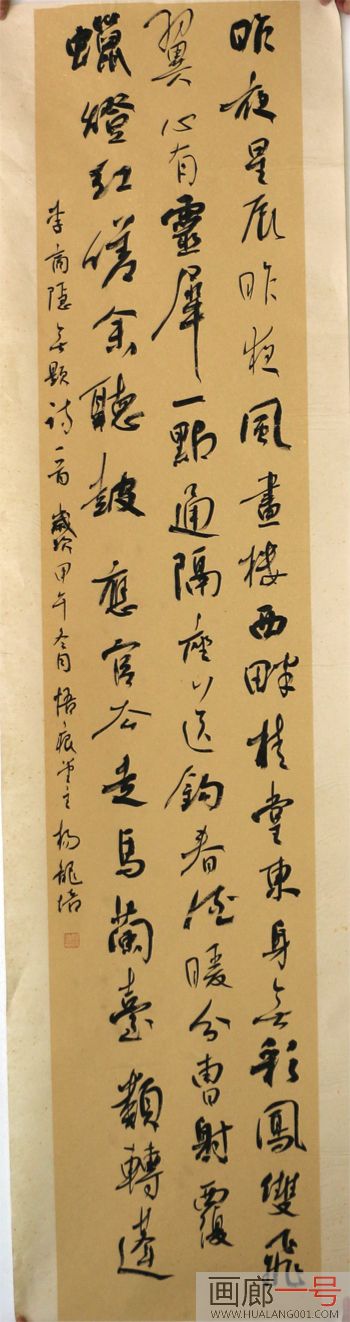 昨夜星辰昨夜風畫樓西畔桂堂東身無彩鳳雙飛
翼心有靈犀一點通隔座送鈎春酒暖分曹射覆
蠟燈紅嗟余聽鼓應官去走馬蘭臺類轉蓬
李商隱無題詩一首歲次甲午冬月悟痕堂主楊龍培
画廊一号
WWW.HUALANG001.COM